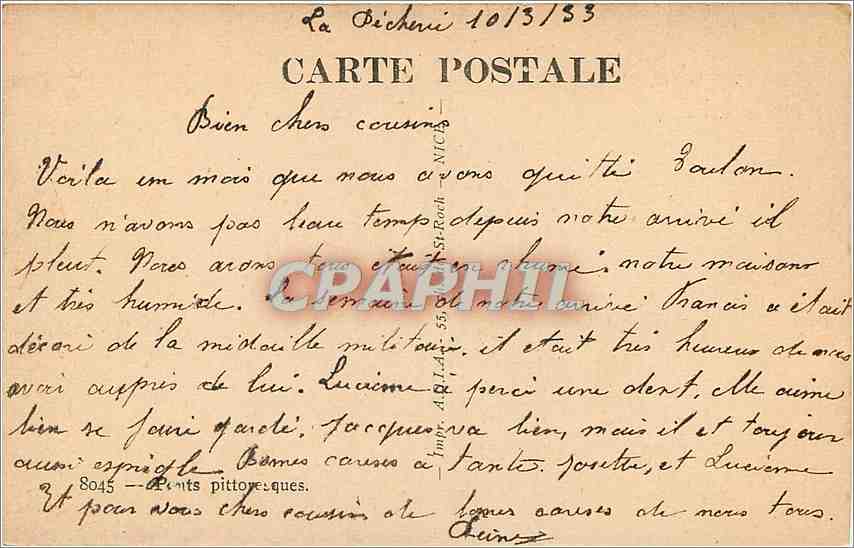 La Pécherie 10/3/33
CARTE POSTALE
Bien chers cousins
Voila un mois que nous avons quitté Toulon.
Nous n'avons pas beau temps depuis notre arrivé il
pleut. Nous avons tous était en rhumé. notre maison
et très humide. La semaine de notre arrivé Francis a était
décoré de la midaille militaire. il etait très heureux de nous
avoir auprès de lui. Lucienne a percé une dent, elle aime
bien se faire gardé. Jacques va bien, mais il et toujour
aussi espiègle. Bonnes careses a tante. Josette, et Lucienne
8045 — Ponts pittoresques.
Et pour vous chers cousins de bones careses de nous tous.
Impr. St-Roch — NICE
CPAPHIL